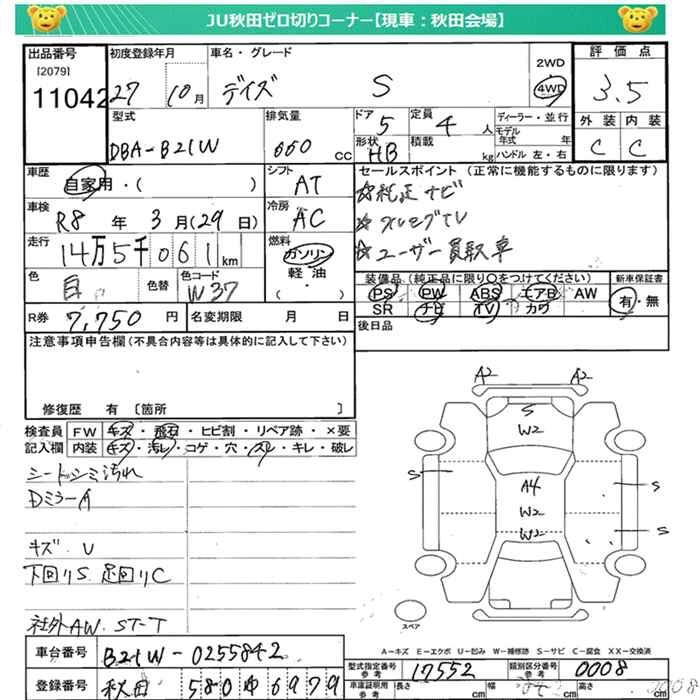 JU秋田ゼロ切りコーナー【現車：秋田会場】
出品番号
[2079]
11042
初度登録年月
27 10月
車名・グレード
デイズ S
2WD
4WD
評価点
3.5
外装 内装
C C
型式
DBA-B21W
排気量
660 cc
ドア
5
定員
4 人
形状
HB
積載
kg
ディーラー・並行
モデル年式 年
ハンドル 左・右
車歴
自家用・( )
シフト
AT
車検
R8 年 3 月(29 日)
冷房
AC
走行
14万5千061km
燃料
ガソリン
軽・油
( )
色
白
色替
色コード
W37
R券 7,750 円
名変期限 月 日
セールスポイント (正常に機能するものに限ります)
☆純正ナビ
☆フルセグTV
☆ユーザー買取車
装備品 (純正品に限り○をつけてください)
新車保証書
PS PW ABS エアB AW
SR ナビ TV カワ
有・無
後日品
注意事項申告欄(不具合内容等は具体的に記入して下さい)
修復歴 有 〔箇所 〕
検査員記入欄
FW キズ・飛石・ヒビ割・リペア跡・×要
内装 キズ・汚レ・コゲ・穴・スレ・キレ・破レ
シートシミ汚れ
DミラーA
キズ.U
下回りS 足回りC
社外AW. ST-T
A2 A2
S
W2
S
A4
S
W2
W2
S
スペア
A-キズ E-エクボ U-凹み W-補修跡 S-サビ C-腐食 XX-交換済
車台番号 B21W-0255842
登録番号 秋田 580 6979
型式指定番号 参考 17552
類別区分番号 参考 0008
車庫証明用 参考
長さ cm
幅 cm
高さ cm